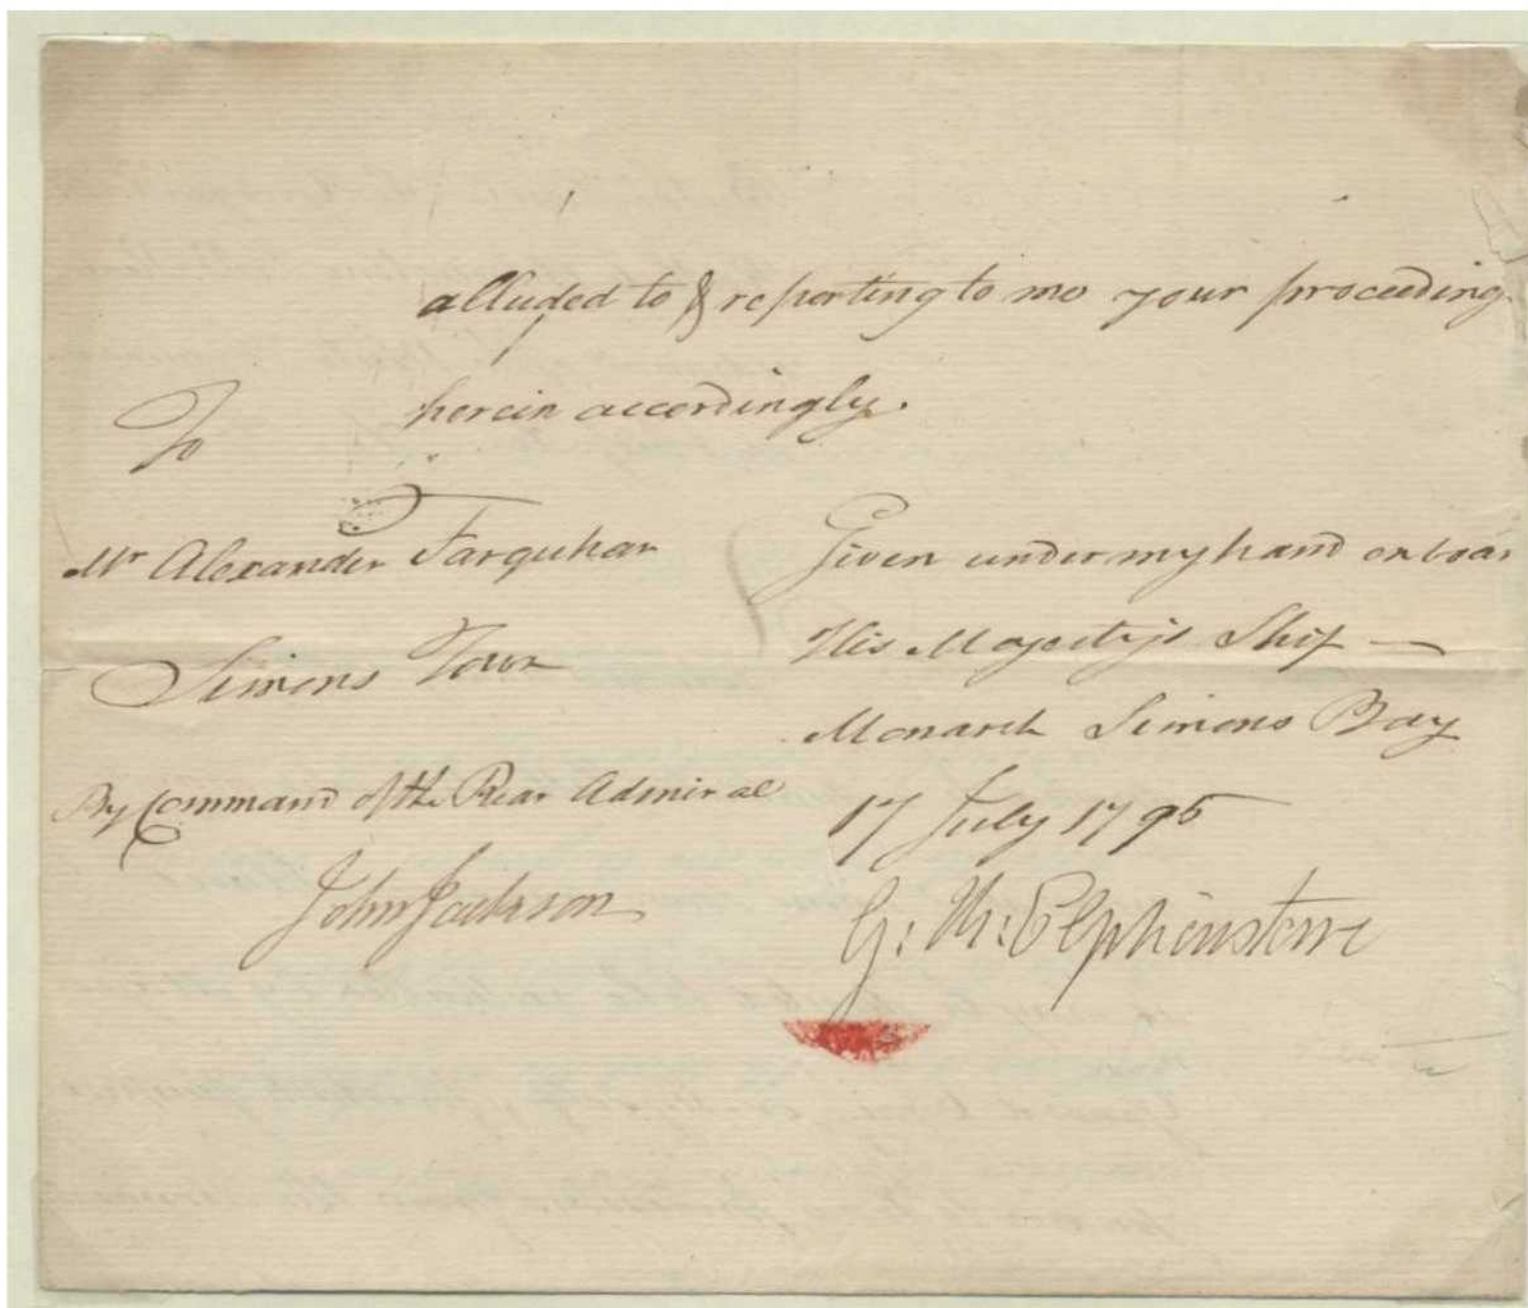 alluded to & reporting to me your proceeding
herein accordingly.
To
Mr Alexander Farquhar
Simons Town
By Command of the Rear Admiral
John Jackson
Given under my hand on boar
His Majesty's Ship —
Monarch Simons Bay
17 July 1795
G: K: Elphinstone